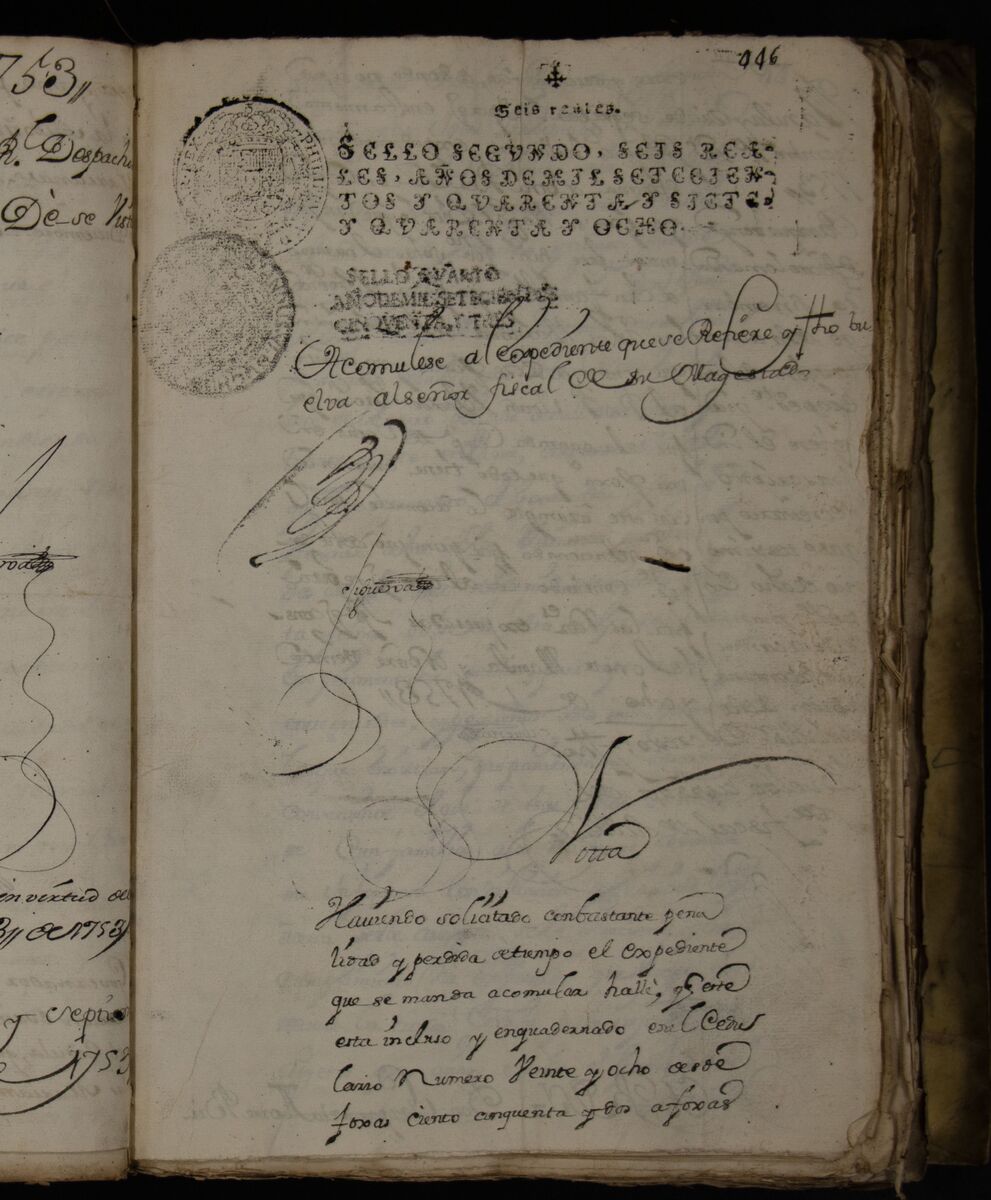 1753,,
R.l Despacho
De se Vist
in virtud de
3,, de 1753
y Septie
1753
446
Seis reales.
SELLO SEGVNDO, SEIS REA-
LES, AÑOS DE MIL SETECIEN-
TOS Y QVARENTA Y SIETE
Y QVARENTA Y OCHO
SELLO QVARTO
AÑO DE MIL SETECIENTOS
CINQVENTA Y TRES
Acomulese al expediente que se Refiere y fho bu
elva al señor fiscal de su Magestad
Notta
Haviendo solicitado con bastante pena
lidad y perdida de tiempo el expediente
que se manda acomular hallè, q.e este
esta incluso y enquadernado en el Cedu
lario Numero Veinte y ocho desde
foxas ciento cinquenta y dos a foxas